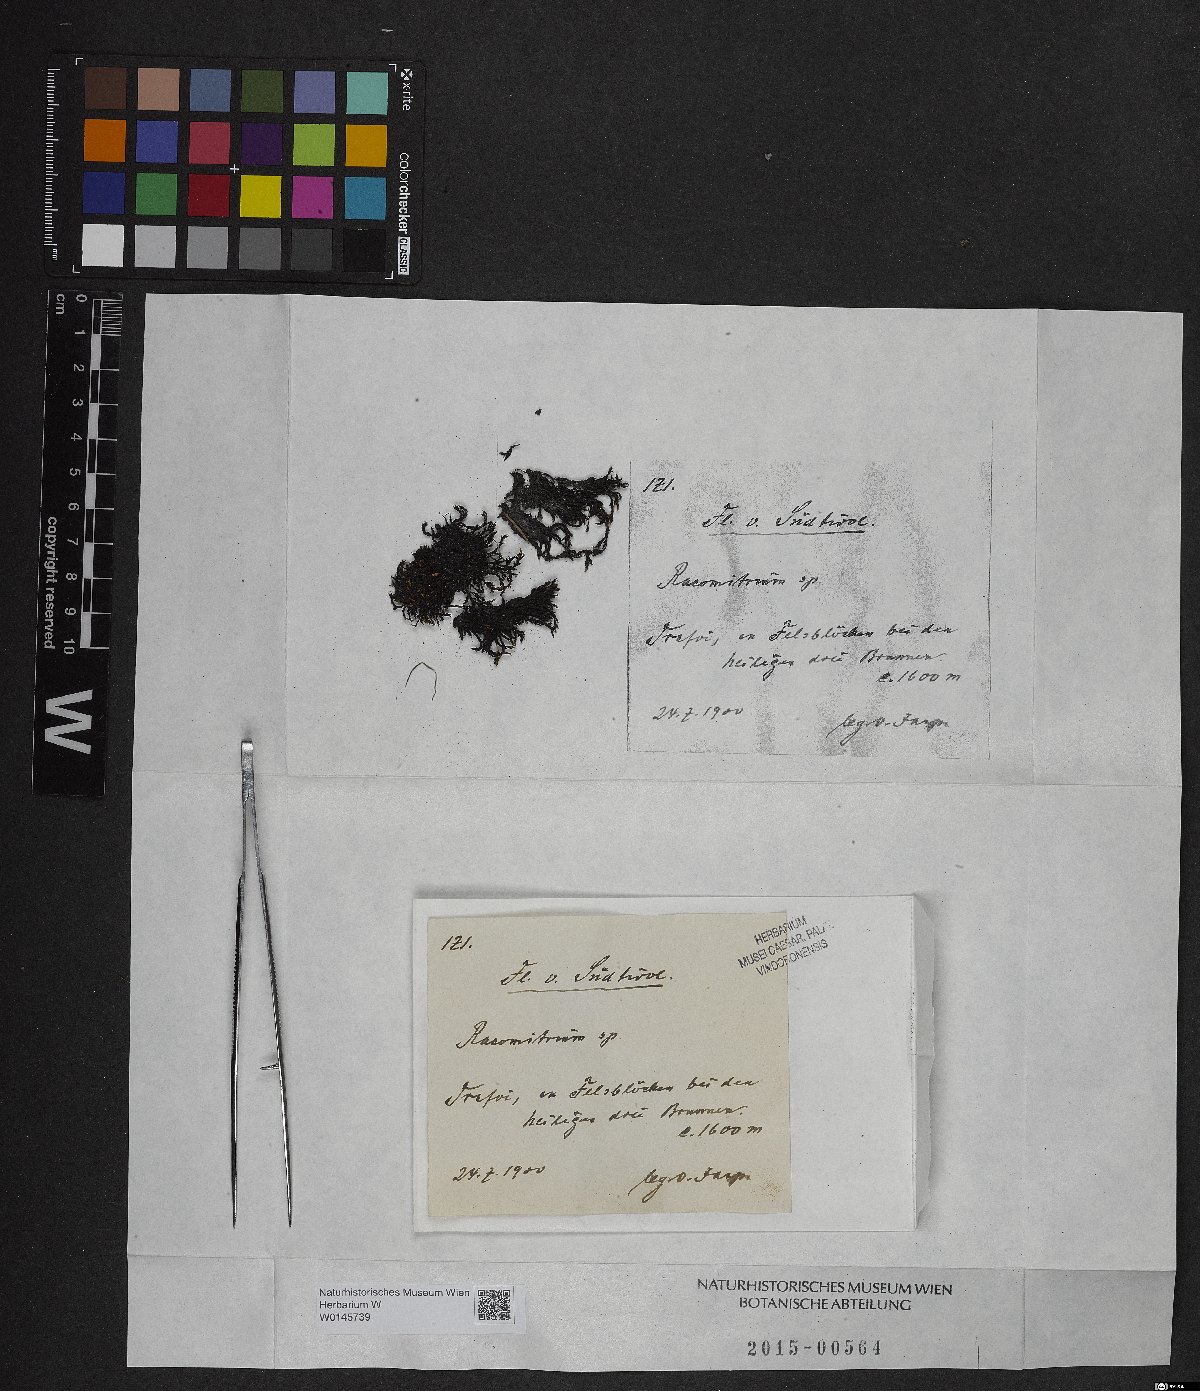 x-rite
colorchecker CLASSIC
mm
0 1 2 3 4 5 6 7 8 9 10
cm
copyright reserved
W
121.
Fl. v. Südtirol.
Racomitrium sp
Trafoi, an Felsblöcken bei den
heiligen drei Brunnen.
c. 1600 m
24.7.1900
leg. v.
HERBARIUM
MUSEI CAESAR. PALAT.
VINDOBONENSIS
121.
Fl. v. Südtirol.
Racomitrium sp
Trafoi, an Felsblöcken bei den
heiligen drei Brunnen.
c. 1600 m
24.7.1900
leg. v.
Naturhistorisches Museum Wien
Herbarium W
W0145739
NATURHISTORISCHES MUSEUM WIEN
BOTANISCHE ABTEILUNG
2015-00564